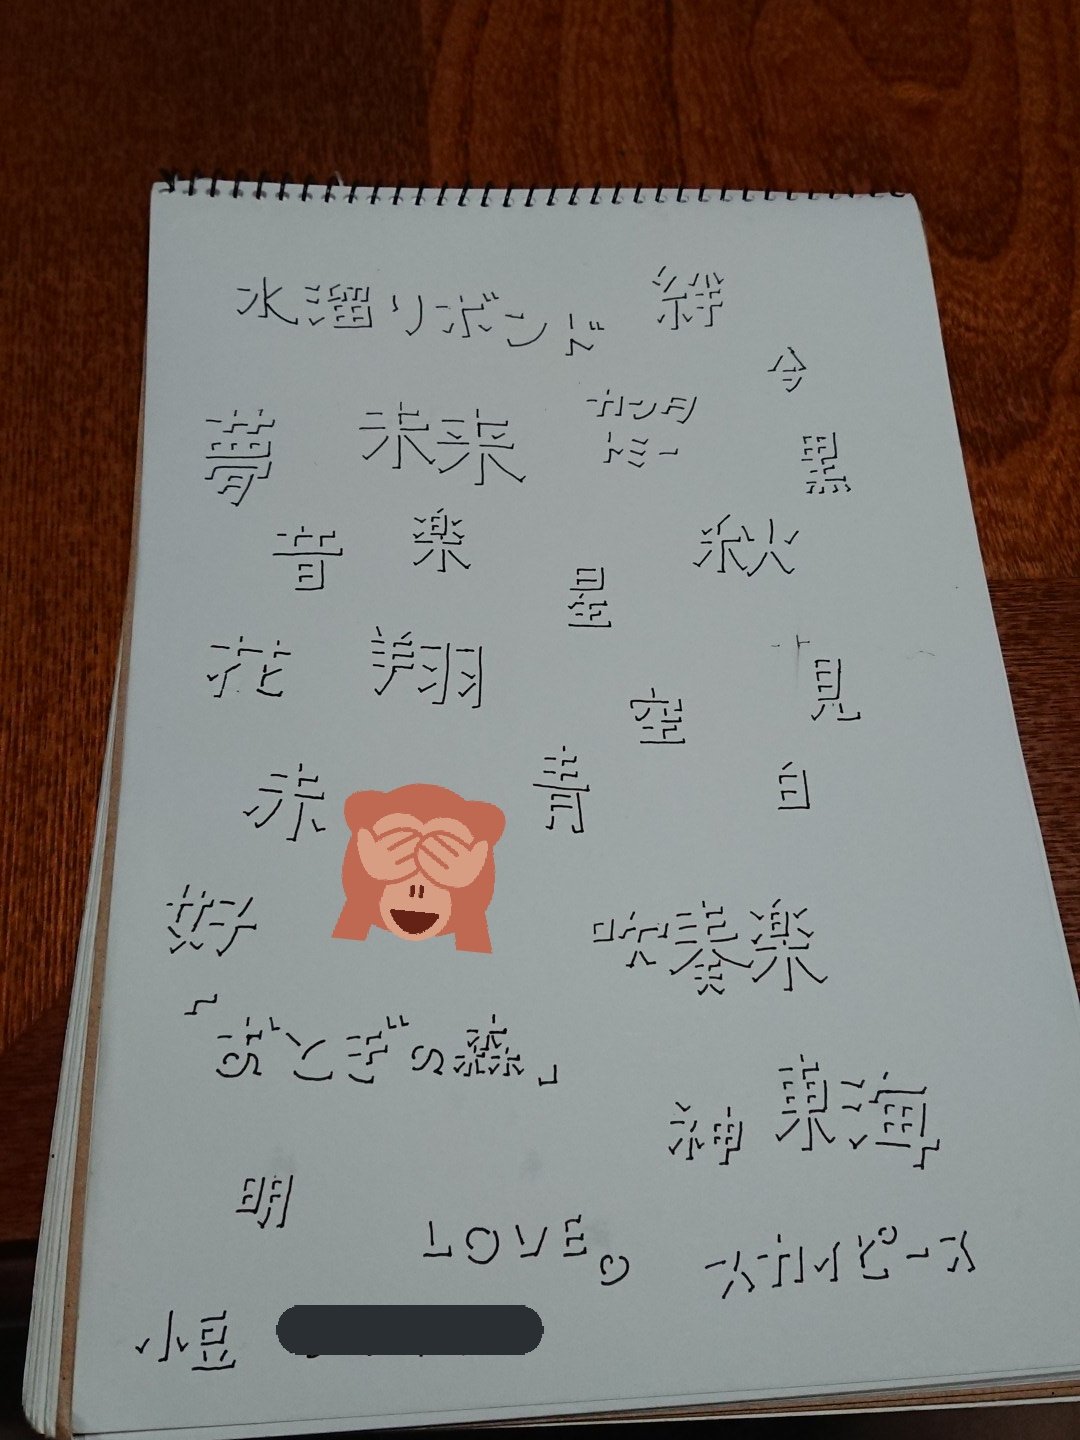 水溜りボンド
絆
今
夢
未来
カンタ
トミー
黒
音
楽
星
秋
花
翔
空
見
赤
青
白
好
喫茶楽
「ぎとぎの森」
神
東海
明
LOVE。
スカイピース
小豆